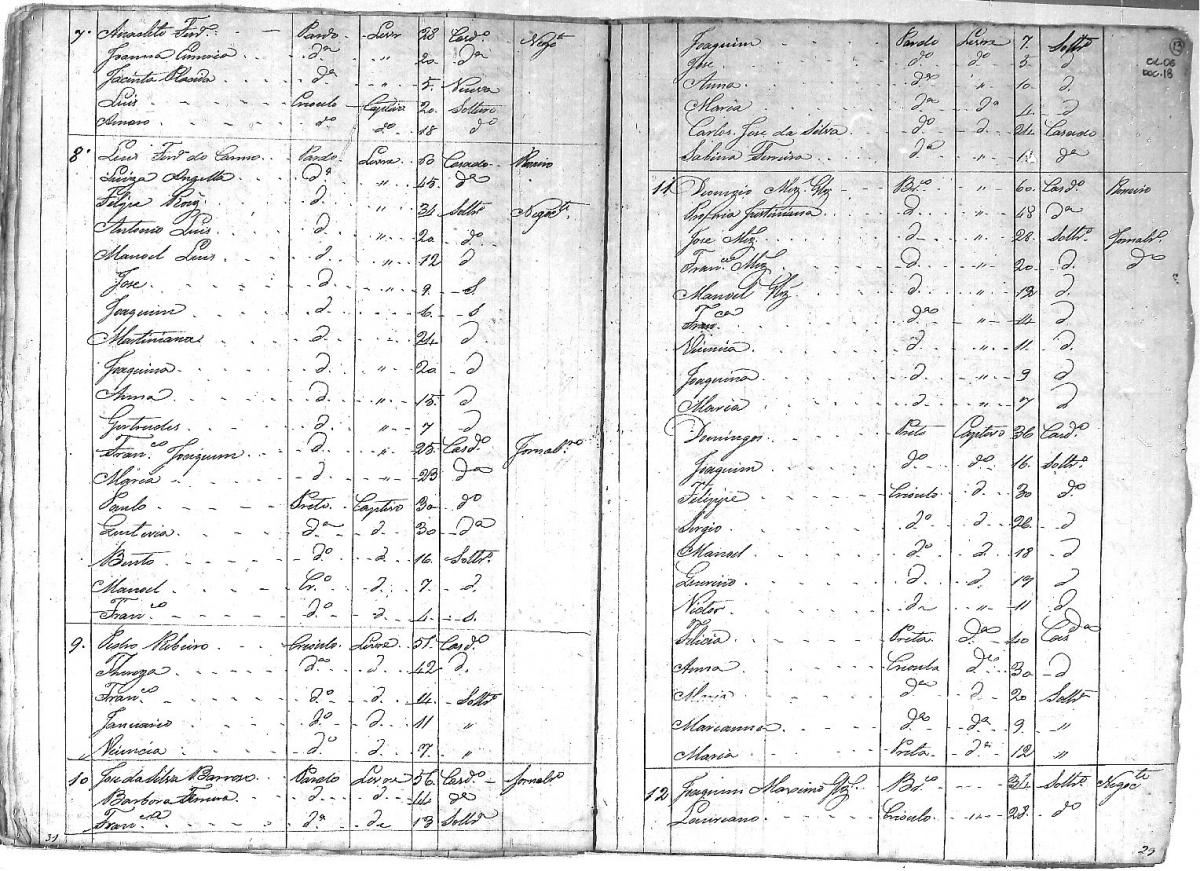 7. Anacleto Ferz. Pardo Livre 28 Cardo. Negte.
Joanna da " 20 da
Jacinta da " 5 Viuva
Luis Crioulo Captivo 20 Solteiro
Amaro do do 18 do
8. Luis Ferz do Carmo Pardo Livre 50 Casado
Luiza Angella da " 45 da
Felipe d " 34 Soltro Negocte.
Antonio Luis d " 20 do
Manoel Luis d " 12 d
Jose d " 9 S.
Joaquim d 6 S
Martiniana d 24 d
Joaquina d " 20 d
Anna d " 15 d
Gertrudes d " 7 d
Franco Joaquim d 25 Cardo. Jornalro
Maria d " 23 da
Paulo Preto Captivo 30 do
da d 30 da
Bento do d 16 Soltro
Manoel Cro. d 7 d.
Franco do d 4 S.
9. Pedro Ribeiro Crioulo Livre 51 Cardo
Thereza da d 42 d.
Franco do d 14 Soltro
Januario do d 11 "
Vicencia do d 7 "
10 Jose da Silva Barroso Pardo Livre 56 Cardo Jornalro
Barbora Ferreira 44 da
Franca da da 13 Soltro
31
13
CX-06
DOC.18
Joaquim Pardo Livre 7 Soltro
Jose do do 5 d
Anna da " 10 d.
Maria da da 4 d
Carlos Jose da Silva do d 24 Casado
Sabina Ferreira da " da
11 Dionizio Miz Glz Bco. " 60 Cardo
Justiniana d " 48 da
Jose Miz d " 28 Soltro Jornalro
Franco Miz d " 20 d. do
Manoel Glz d " 13 d
Franca da " 14 d
Vicencia d " 11 d
Joaquina d " 9 d
Maria d " 7 d
Domingos Preto Captivo 36 Cardo
Joaquim do do 16 Soltro
Felippe Crioulo d 30 do
Sergio do d 26 d
Manoel do d 18 d
d d 19 d
Victor da " 11 d
Felicia Preta da 40 Casda
Anna Crioula do 30 d
Maria da d 20 Soltra
Marianna da da 9 "
Maria Preta da 12 "
12 Joaquim Maximo Glz Bco. 34 Soltro Negocte
Laureano Crioulo 28 do
23